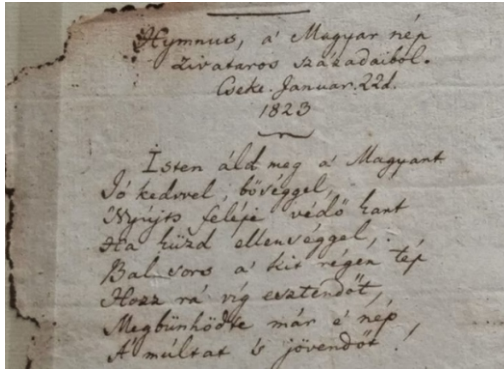 Hymnus, a' Magyar nép
zivataros századaiból.
Cseke. Januar. 22d.
1823
Isten áld meg a' Magyart
Jó kedvvel bőséggel,
Nyújts feléje védő kart
Ha küzd ellenséggel,
Bal sors a' kit régen tép
Hozz rá víg esztendőt,
Megbűnhödte már e' nép
A' múltat 's jövendőt!